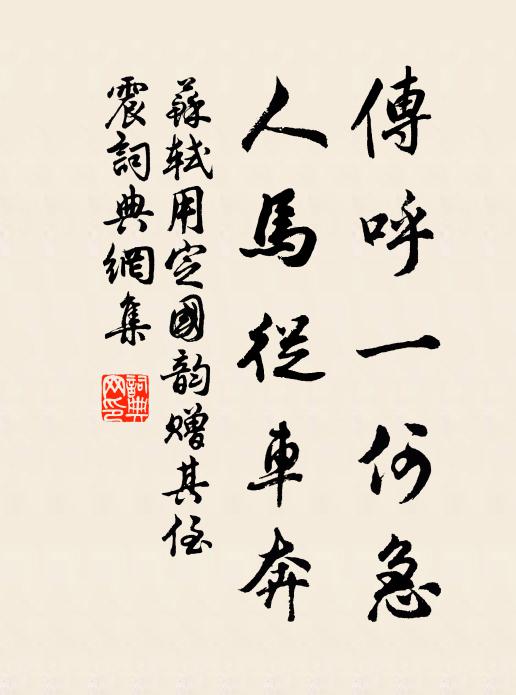 傳呼一何急
人馬從車奔
蘇軾用定國韵贈其侄
震詞典網集
詞典
网印